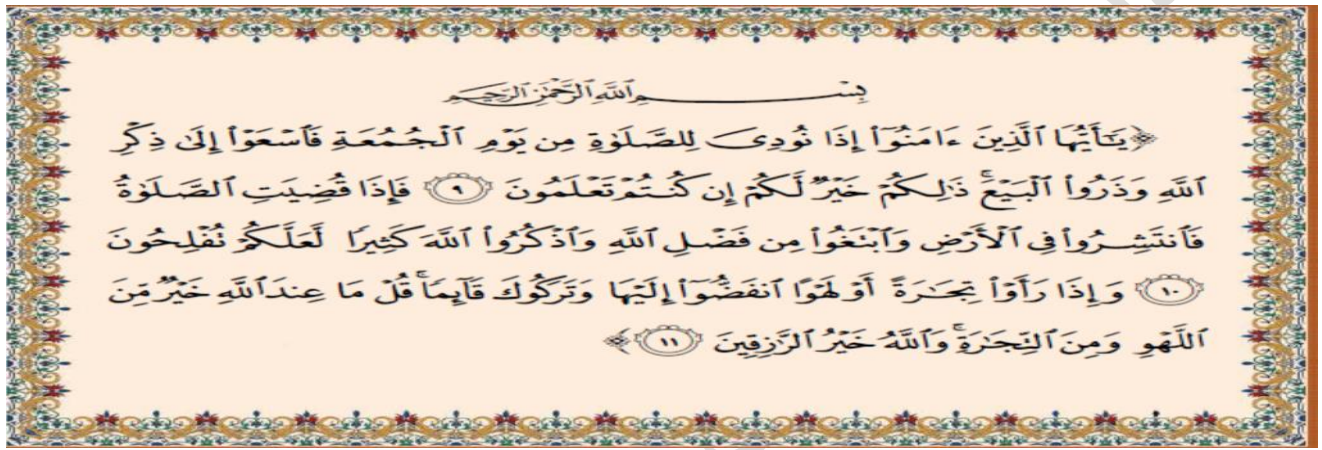 بِسْمِ ٱللَّهِ ٱلرَّحْمَٰنِ ٱلرَّحِيمِ
﴿يَـٰٓأَيُّهَا ٱلَّذِينَ ءَامَنُوٓا۟ إِذَا نُودِىَ لِلصَّلَوٰةِ مِن يَوْمِ ٱلْجُمُعَةِ فَٱسْعَوْا۟ إِلَىٰ ذِكْرِ
ٱللَّهِ وَذَرُوا۟ ٱلْبَيْعَ ۚ ذَٰلِكُمْ خَيْرٌ لَّكُمْ إِن كُنتُمْ تَعْلَمُونَ ٩ فَإِذَا قُضِيَتِ ٱلصَّلَوٰةُ
فَٱنتَشِرُوا۟ فِى ٱلْأَرْضِ وَٱبْتَغُوا۟ مِن فَضْلِ ٱللَّهِ وَٱذْكُرُوا۟ ٱللَّهَ كَثِيرًا لَّعَلَّكُمْ تُفْلِحُونَ
١٠ وَإِذَا رَأَوْا۟ تِجَـٰرَةً أَوْ لَهْوًا ٱنفَضُّوٓا۟ إِلَيْهَا وَتَرَكُوكَ قَآئِمًا ۚ قُلْ مَا عِندَ ٱللَّهِ خَيْرٌ مِّنَ
ٱللَّهْوِ وَمِنَ ٱلتِّجَـٰرَةِ ۚ وَٱللَّهُ خَيْرُ ٱلرَّٰزِقِينَ ١١﴾